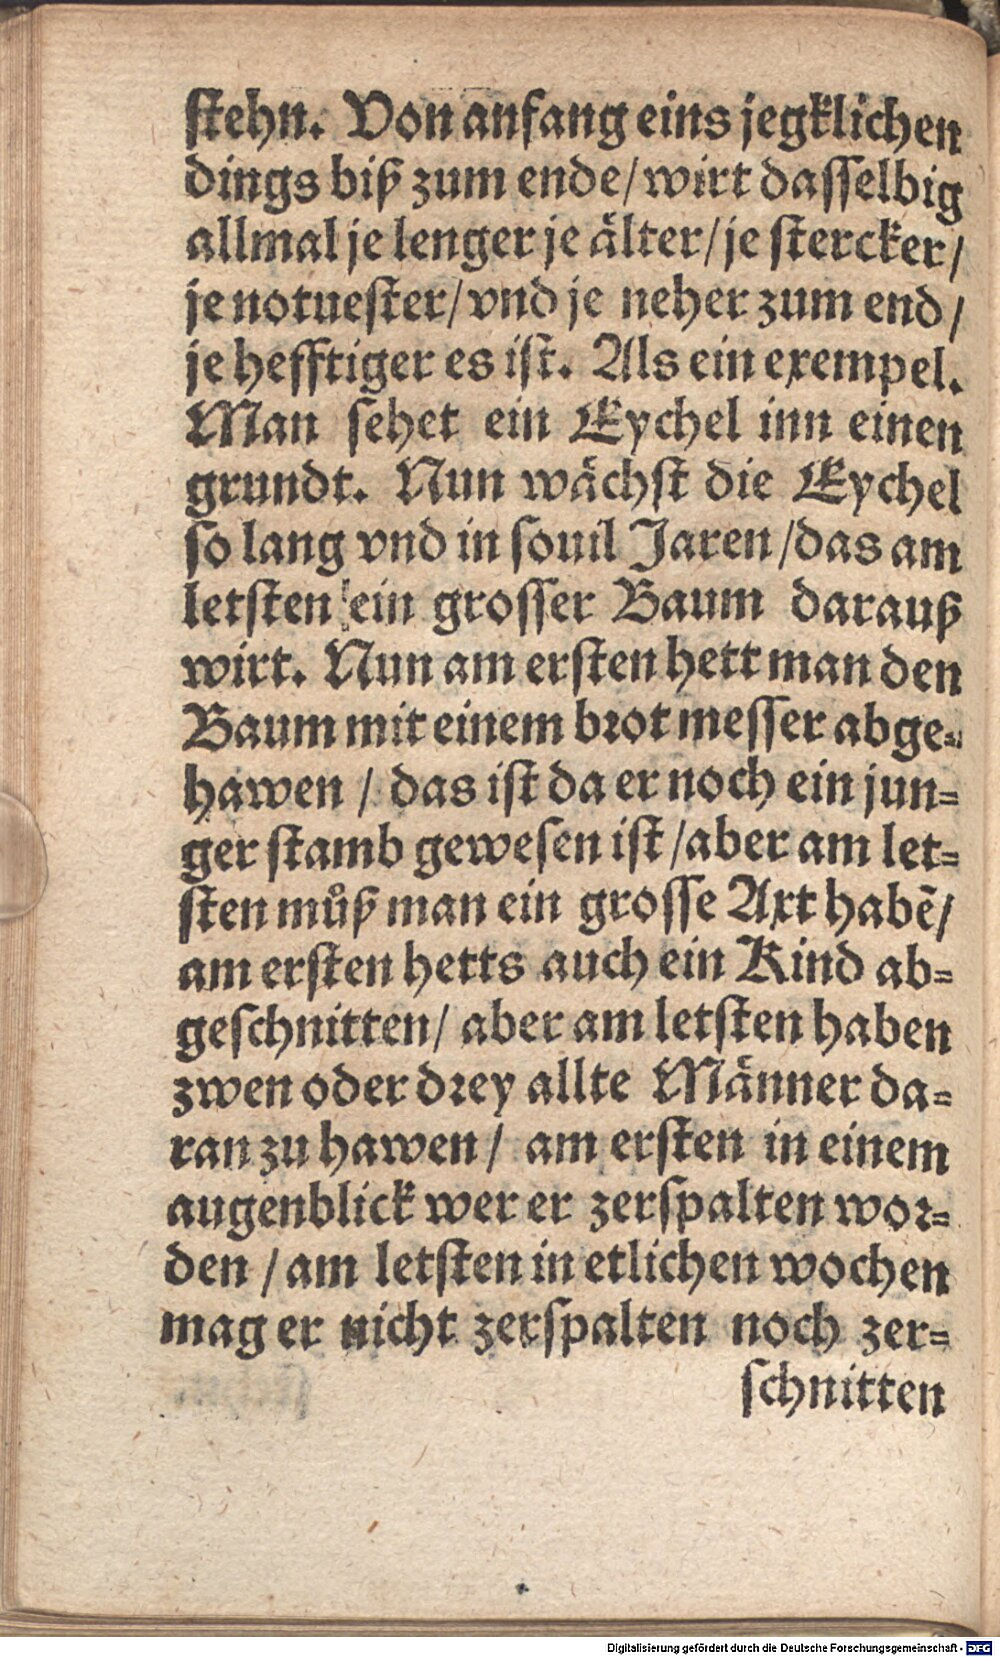 ſtehn. Von anfang eins jegklichen
dings biß zum ende/ wirt daſſelbig
allmal je lenger je älter/ je ſtercker/
je notueſter/ vnd je neher zum end/
je hefftiger es iſt. Als ein exempel.
Man ſehet ein Eychel inn einen
grundt. Nun wächſt die Eychel
ſo lang vnd in ſouil Jaren/ das am
letſten ein groſſer Baum darauß
wirt. Nun am erſten hett man den
Baum mit einem brot meſſer abge-
hawen / das iſt da er noch ein jun-
ger ſtamb geweſen iſt/ aber am let-
ſten můß man ein groſſe Axt habẽ/
am erſten hetts auch ein Kind ab-
geſchnitten/ aber am letſten haben
zwen oder drey allte Männer da-
ran zu hawen/ am erſten in einem
augenblick wer er zerſpalten wor-
den / am letſten in etlichen wochen
mag er nicht zerſpalten noch zer-
ſchnitten
Digitalisierung gefördert durch die Deutsche Forschungsgemeinschaft - DFG